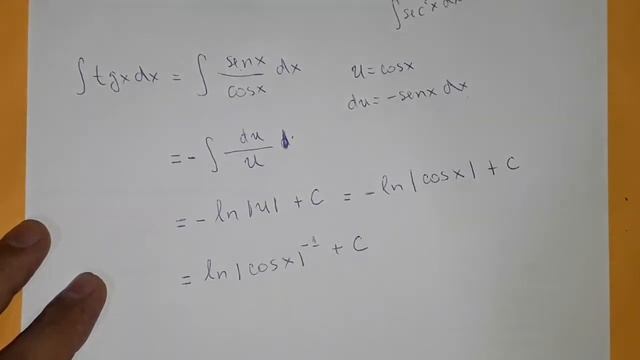 ∫sec²x dx
∫tgxdx = ∫ senx/cosx dx
u=cosx
du=-senx dx
= -∫ du/u
= -ln|u| + C = -ln|cosx| + C
= ln|cosx|⁻¹ + C